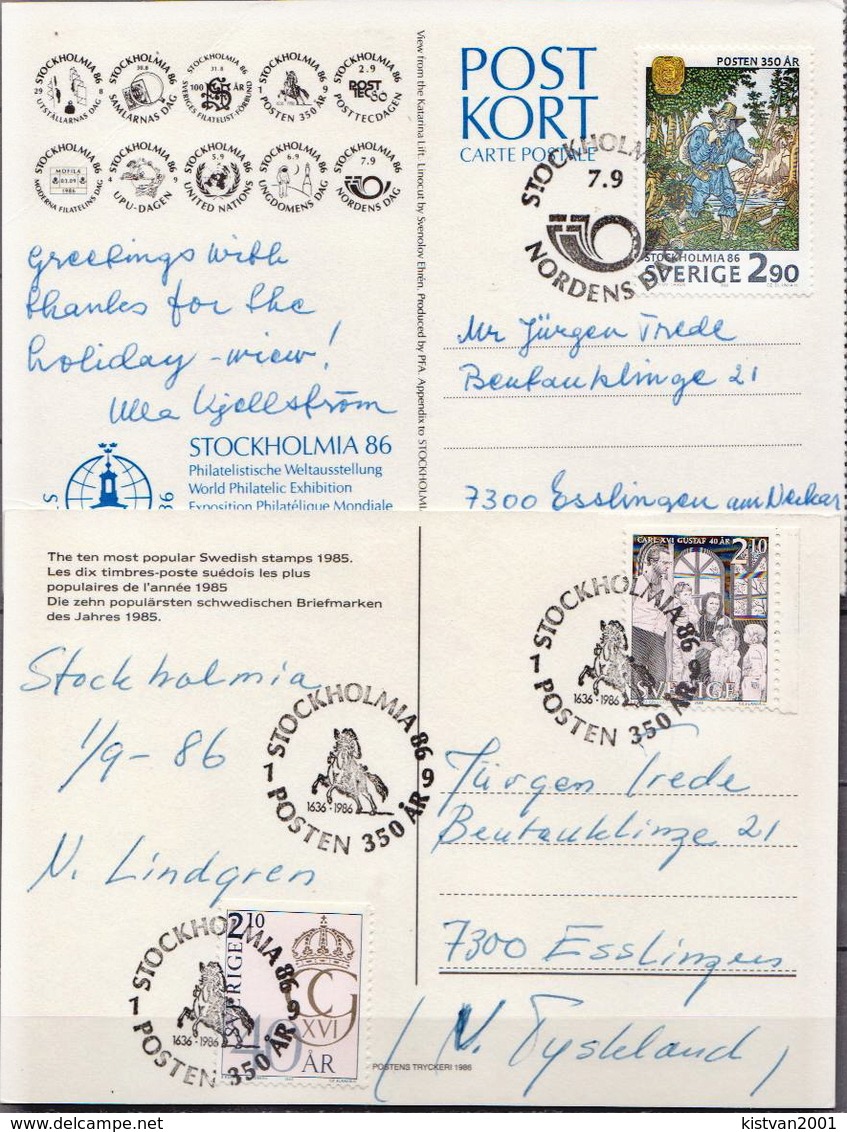 STOCKHOLMIA 86
29 8
UTSTÄLLARNAS DAG
STOCKHOLMIA 86
30.8
SAMLARNAS DAG
STOCKHOLMIA 86
31.8
100 ÅR
SVERIGES FILATELIST-FÖRBUND
STOCKHOLMIA 86
1 9
POSTEN 350 ÅR
STOCKHOLMIA 86
2.9
POSTTEC 86
POSTTECDAGEN
STOCKHOLMIA 86
MOFILA
03.09
1986
MODERNA FILATELINS DAG
STOCKHOLMIA 86
UPU-DAGEN
STOCKHOLMIA 86
5.9
UNITED NATIONS
STOCKHOLMIA 86
6.9
UNGDOMENS DAG
STOCKHOLMIA 86
7.9
NORDENS DAG
View from the Katarina Lift. Linocut by Svenolov Ehrén. Produced by PFA. Appendix to STOCKHOLMI
POST
KORT
CARTE POSTALE
POSTEN 350 ÅR
STOCKHOLMIA 86
SVERIGE 2 90
STOCKHOLM
7.9
NORDENS DA
Greetings with
thanks for the
holiday-wiew!
Ulla Kjellström
Mr Jürgen Trede
Beutauklinge 21
7300 Esslingen am Neckar
STOCKHOLMIA 86
Philatelistische Weltausstellung
World Philatelic Exhibition
Exposition Philatélique Mondiale
The ten most popular Swedish stamps 1985.
Les dix timbres-poste suédois les plus
populaires de l'année 1985
Die zehn populärsten schwedischen Briefmarken
des Jahres 1985.
CARL XVI GUSTAF 40 ÅR
2.10
SVERIGE
STOCKHOLMIA 86
1 9
1636-1986
POSTEN 350 ÅR
Stockholmia
1/9-86
N. Lindgren
STOCKHOLMIA 86
1 9
1636-1986
POSTEN 350 ÅR
Jürgen Trede
Beutauklinge 21
7300 Esslingen
(V. Tyskland)
2.10
SVERIGE
CG
XVI
40
ÅR
STOCKHOLMIA 86
1 9
1636-1986
POSTEN 350 ÅR
POSTENS TRYCKERI 1986
kistvan2001